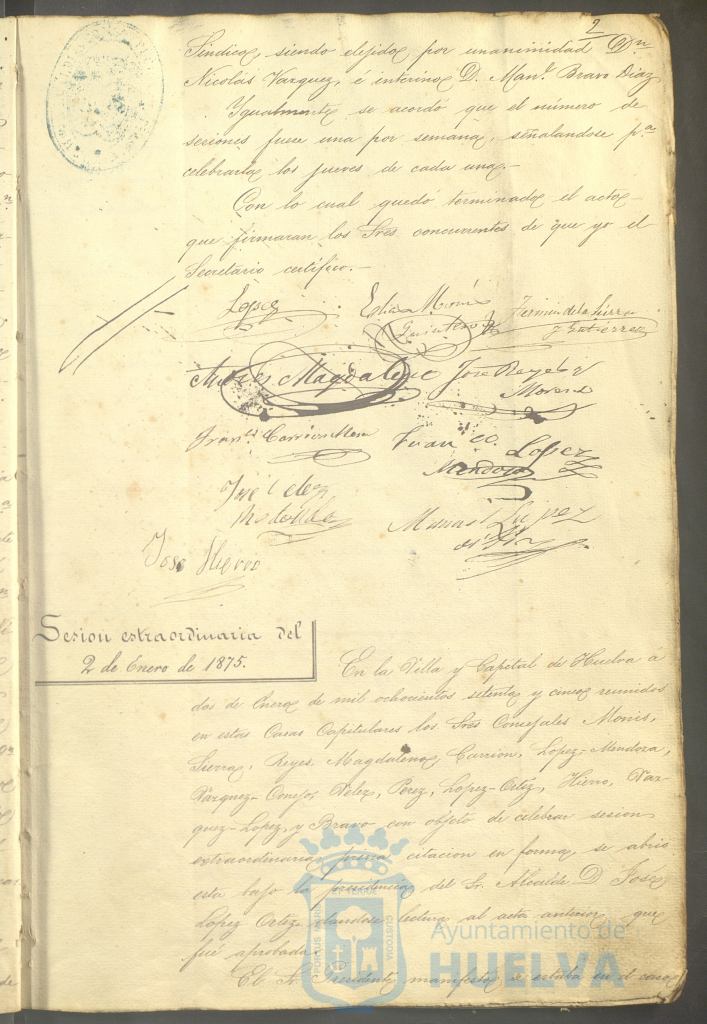 2
Sindico, siendo elejido por unanimidad Dn
Nicolás Vazquez, é interino D. Manl. Bravo Diaz
Igualmente se acordó que el número de
sesiones fuese una por semana, señalandose pa
celebrarla los jueves de cada una.-
Con lo cual quedó terminado el acto
que firmaran los Sres concurrentes de que yo el
Secretario certifico.-
Lopez
Monis
Quintero
Fermin de la Sierra
y Gutiérrez
Magdaleno
Jose Reyes
Moreno
Carrion
Juan
Lopez
Mendoza
José
Lopez
Jose Hierro
Sesion estraordinaria del
2 de Enero de 1875.
En la Villa y Capital de Huelva á
dos de Enero de mil ochocientos setenta y cinco reunidos
en estas Casas Capitulares los Sres Concejales Monis,
Sierra, Reyes, Magdaleno, Carrion, Lopez-Mendoza,
Vazquez-Conejo, Velez, Perez, Lopez-Ortiz, Hierro, Vaz
quez-Lopez, y Bravo con objeto de celebrar sesion
estraordinaria previa citacion en forma, se abrió
esta bajo la presidencia del Sr. Alcalde D. José
Lopez Ortiz dandose lectura al acta anterior que
fué aprobada.
El Sr. Presidente manifestó se estaba en el caso
PORTUS MARIS
ET TERRAE
CUSTODIA
Ayuntamiento de
HUELVA